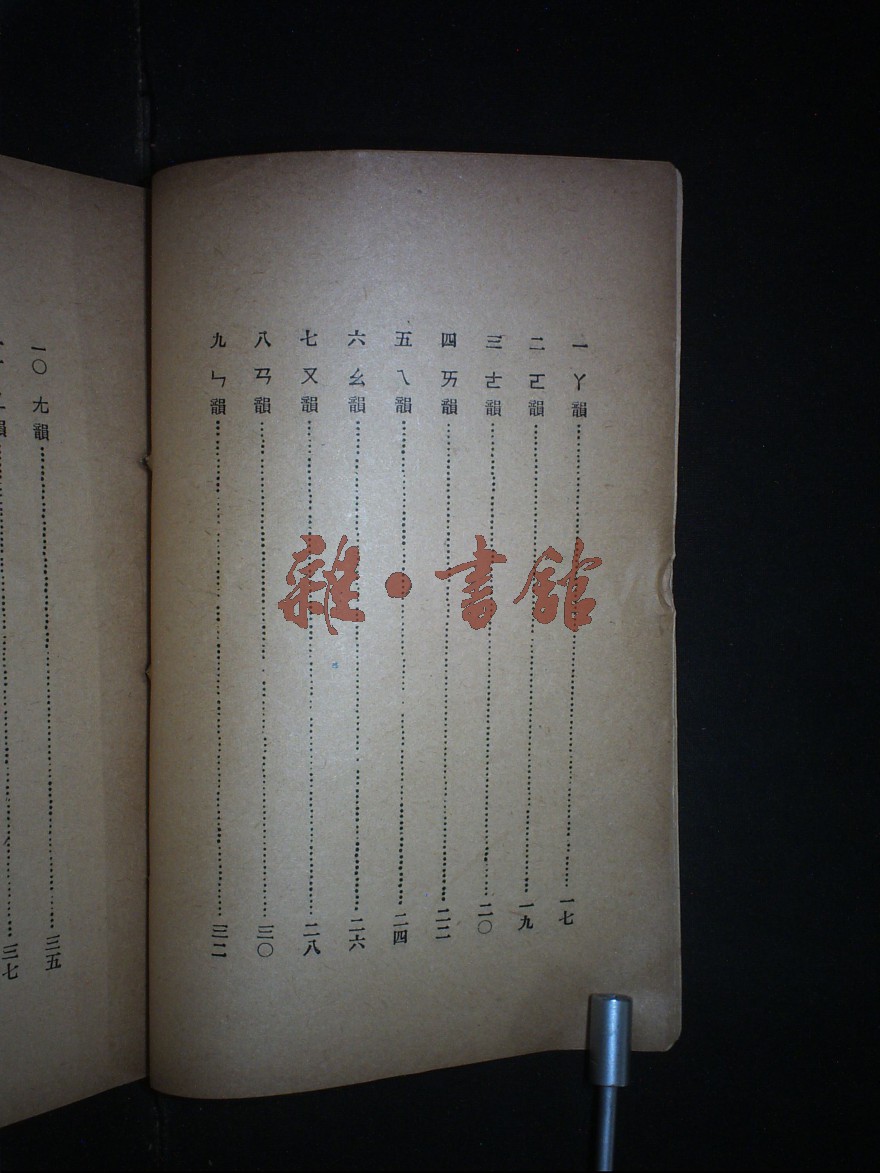 一 ㄚ韻……一七
二 ㄛ韻……一九
三 ㄜ韻……二〇
四 ㄞ韻……二二
五 ㄟ韻……二四
六 ㄠ韻……二六
七 ㄡ韻……二八
八 ㄢ韻……三〇
九 ㄣ韻……三二
一〇 ㄤ韻……三五
韻……三七
雜·書館